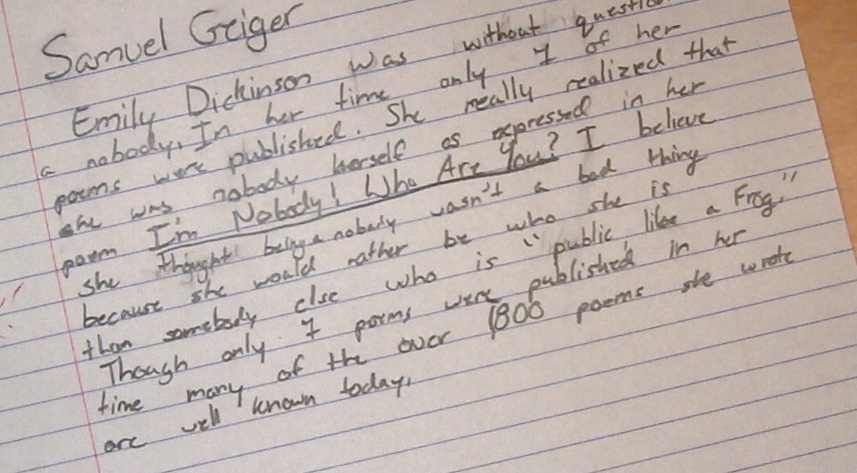 Samuel Geiger
Emily Dickinson was without question
a nobody. In her time only 7 of her
poems were published. She really realized that
she was nobody herself as expressed in her
poem I'm Nobody! Who Are You? I believe
she thought being a nobody wasn't a bad thing
because she would rather be who she is
than somebody else who is "public, like a Frog."
Though only 7 poems were published in her
time many of the over 1800 poems she wrote
are well known today.